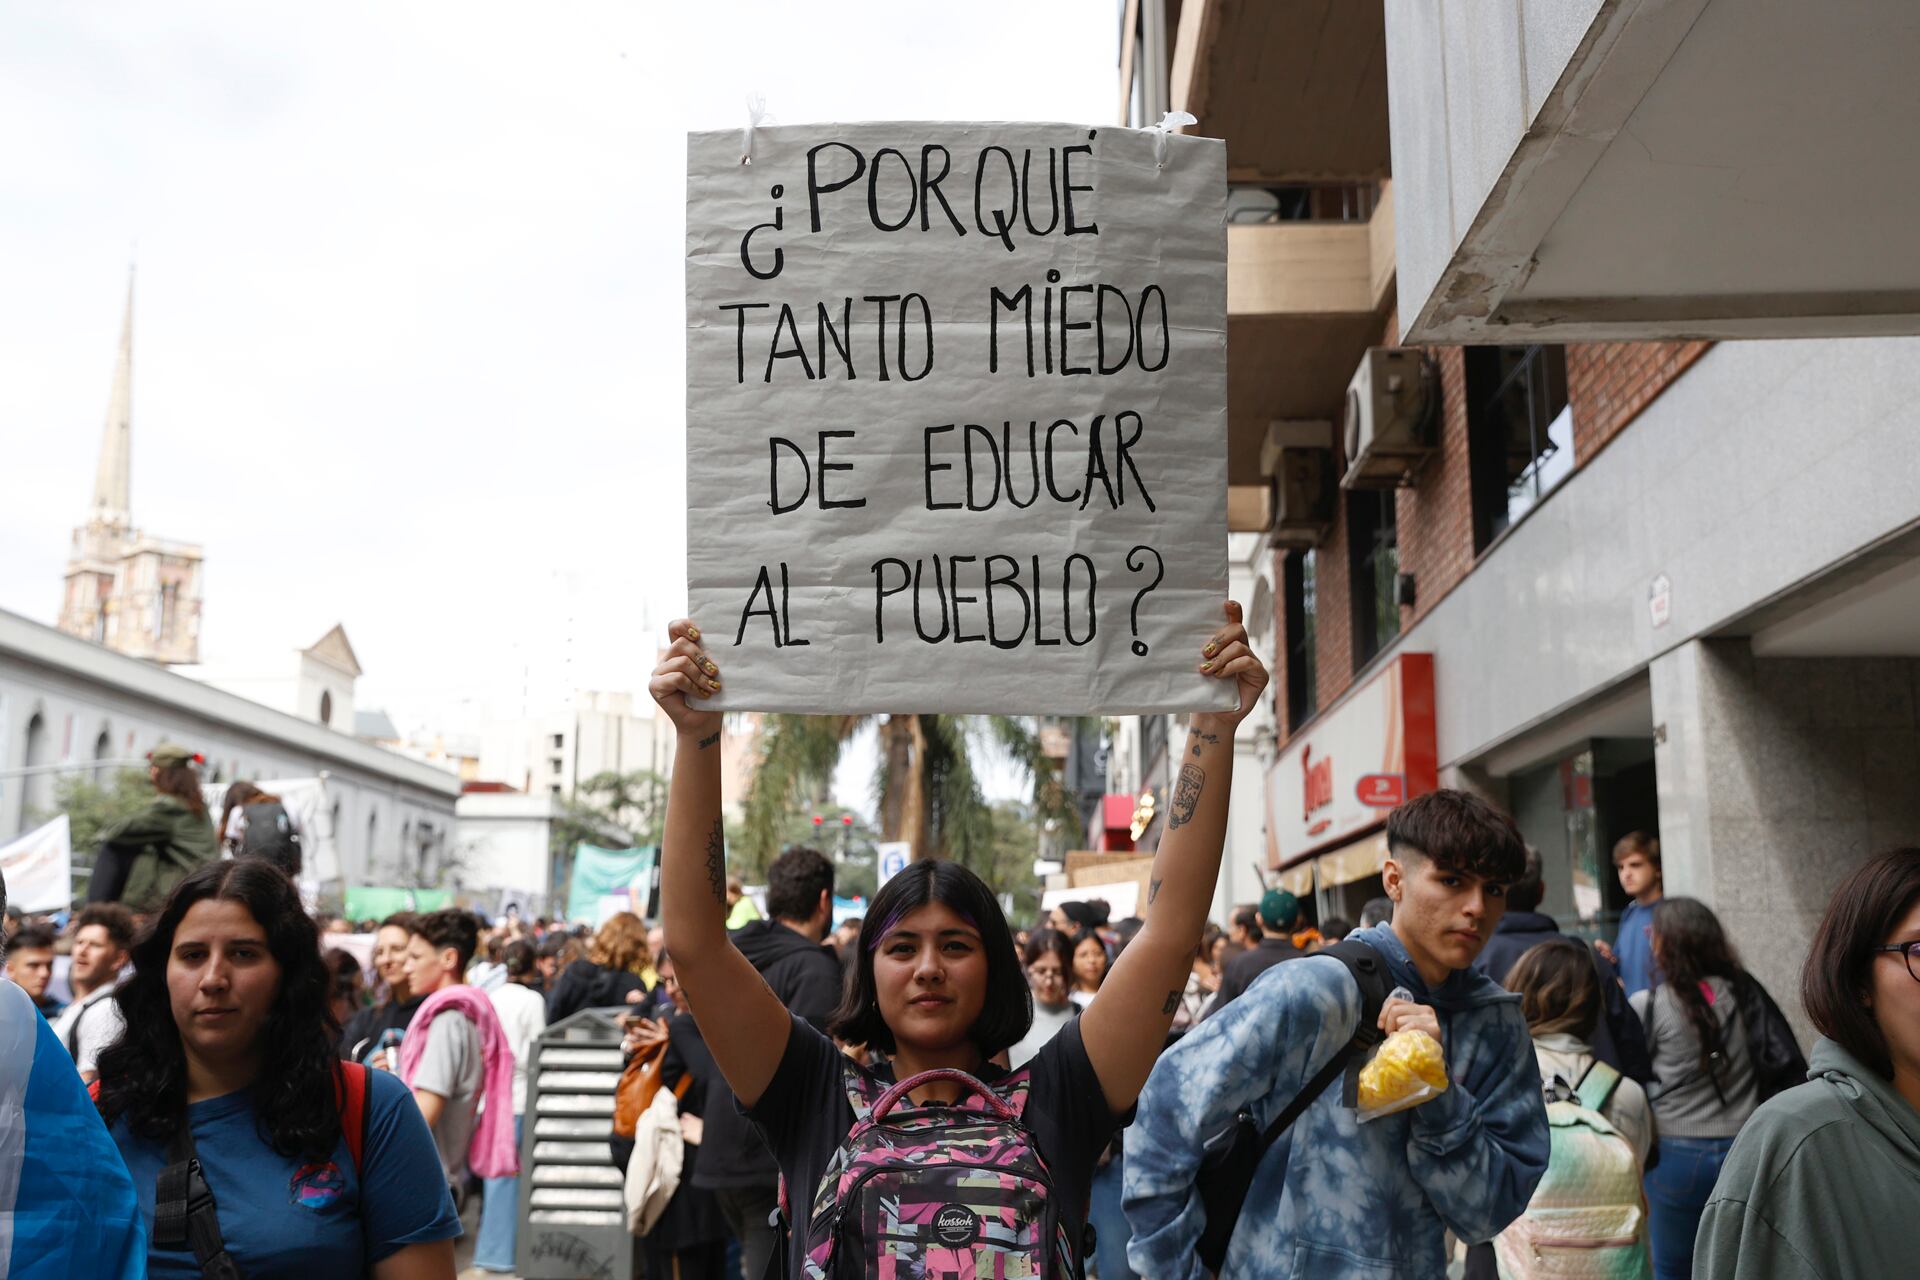 ¿PORQUÉ
TANTO MIEDO
DE EDUCAR
AL PUEBLO?
kossok